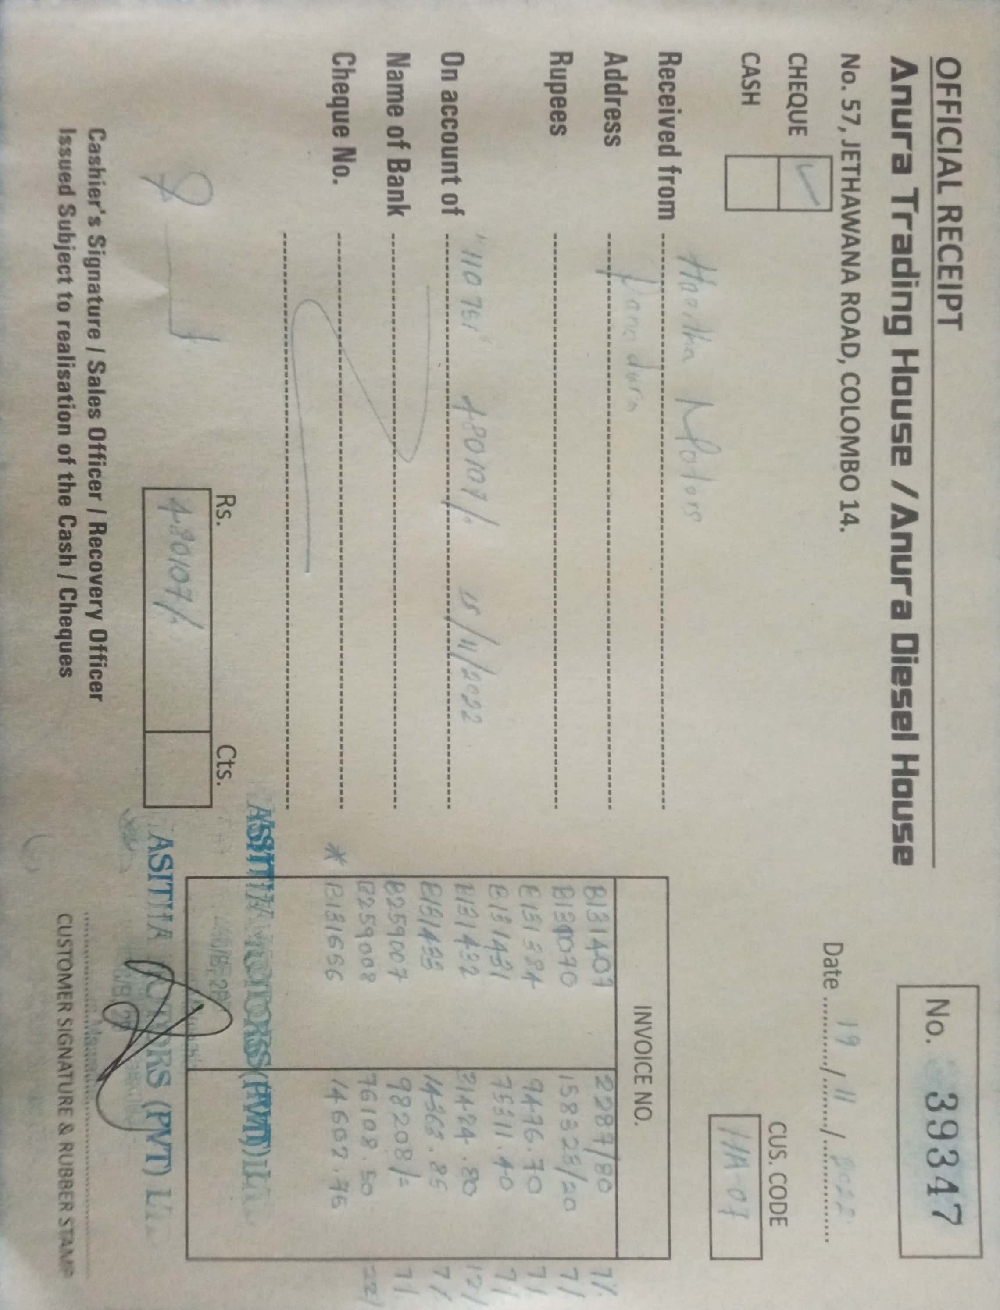 OFFICIAL RECEIPT
Anura Trading House / Anura Diesel House
No. 57, JETHAWANA ROAD, COLOMBO 14.
No. 39347
CHEQUE ✓
CASH
Date 19 / 11 / 2022
CUS. CODE
HA-07
Received from Haritha Motors
Address Panadura
Rupees
On account of "110761" 480107/- 15/11/2022
Name of Bank
Cheque No.
INVOICE NO.
B131407 2287/80 7%
B130070 158323/20 7/
B131384 9476.70 7/
B131431 75311.40 7/
B131432 31484.80 12/
B131435 14363.85 7/
B259007 98208/= 7/
B259008 76108.50
* B131656 14602.75
Rs. Cts.
480107/-
ASITHA MOTORS (PVT) L
Cashier's Signature / Sales Officer / Recovery Officer
Issued Subject to realisation of the Cash / Cheques
CUSTOMER SIGNATURE & RUBBER STAMP